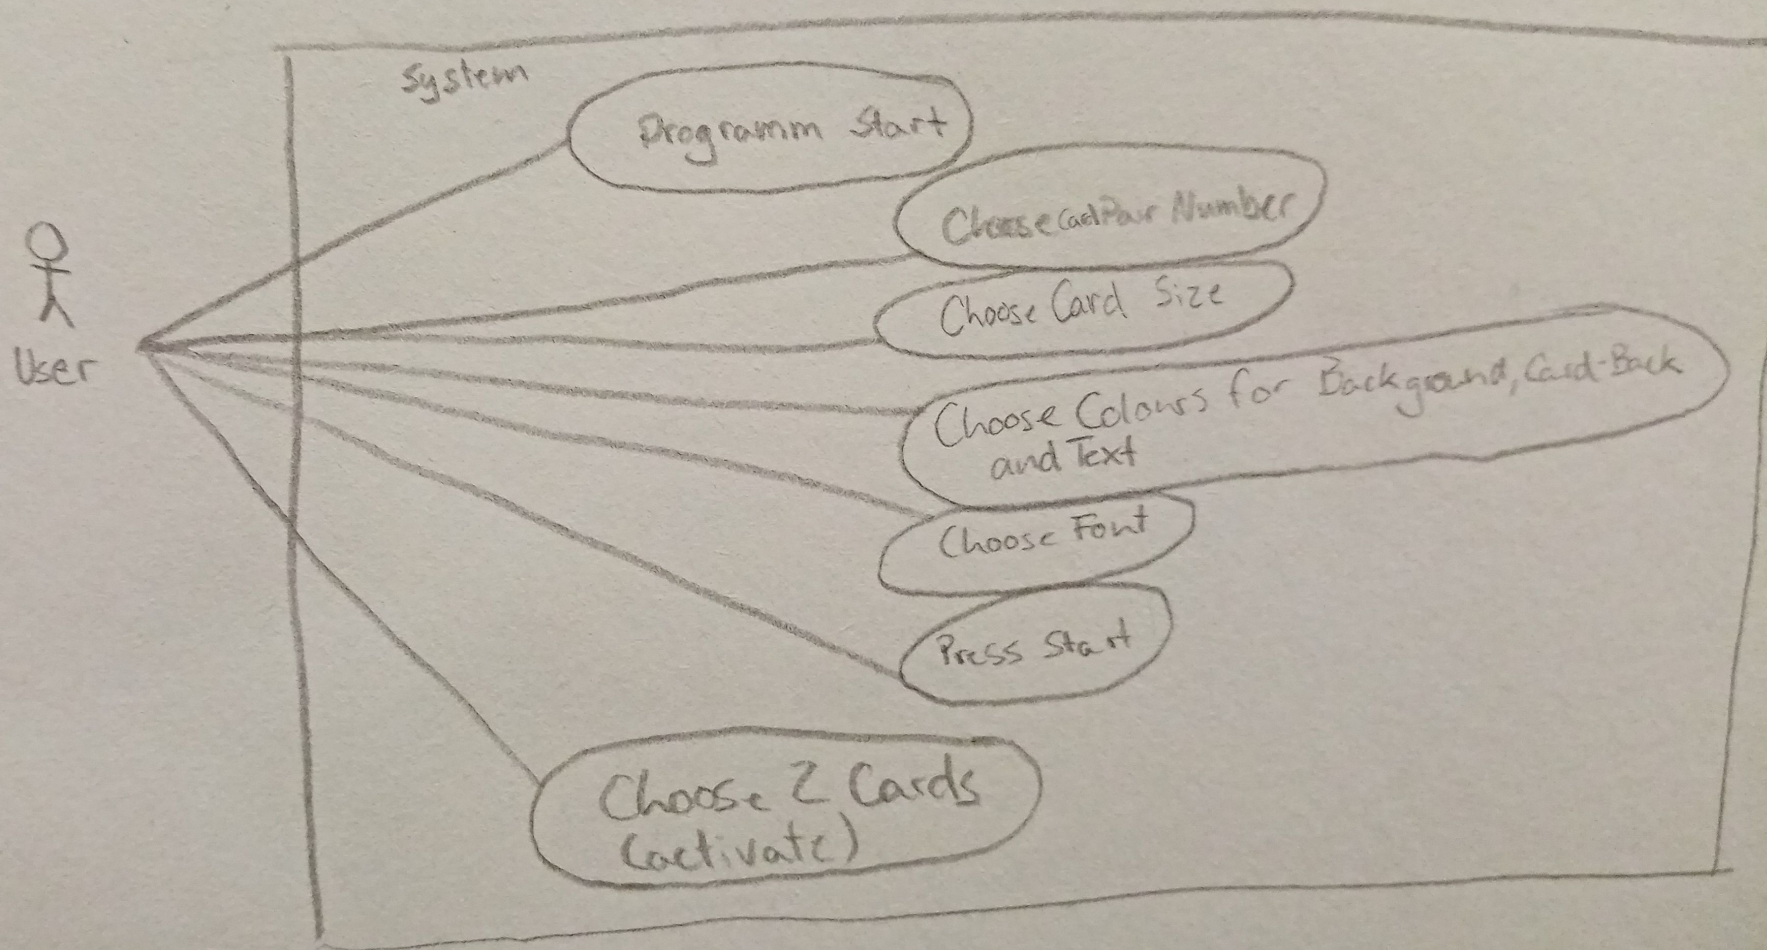 System
Programm Start
Choose CardPair Number
Choose Card Size
User
Choose Colours for Background, Card-Back
and Text
Choose Font
Press Start
Choose 2 Cards
(activate)